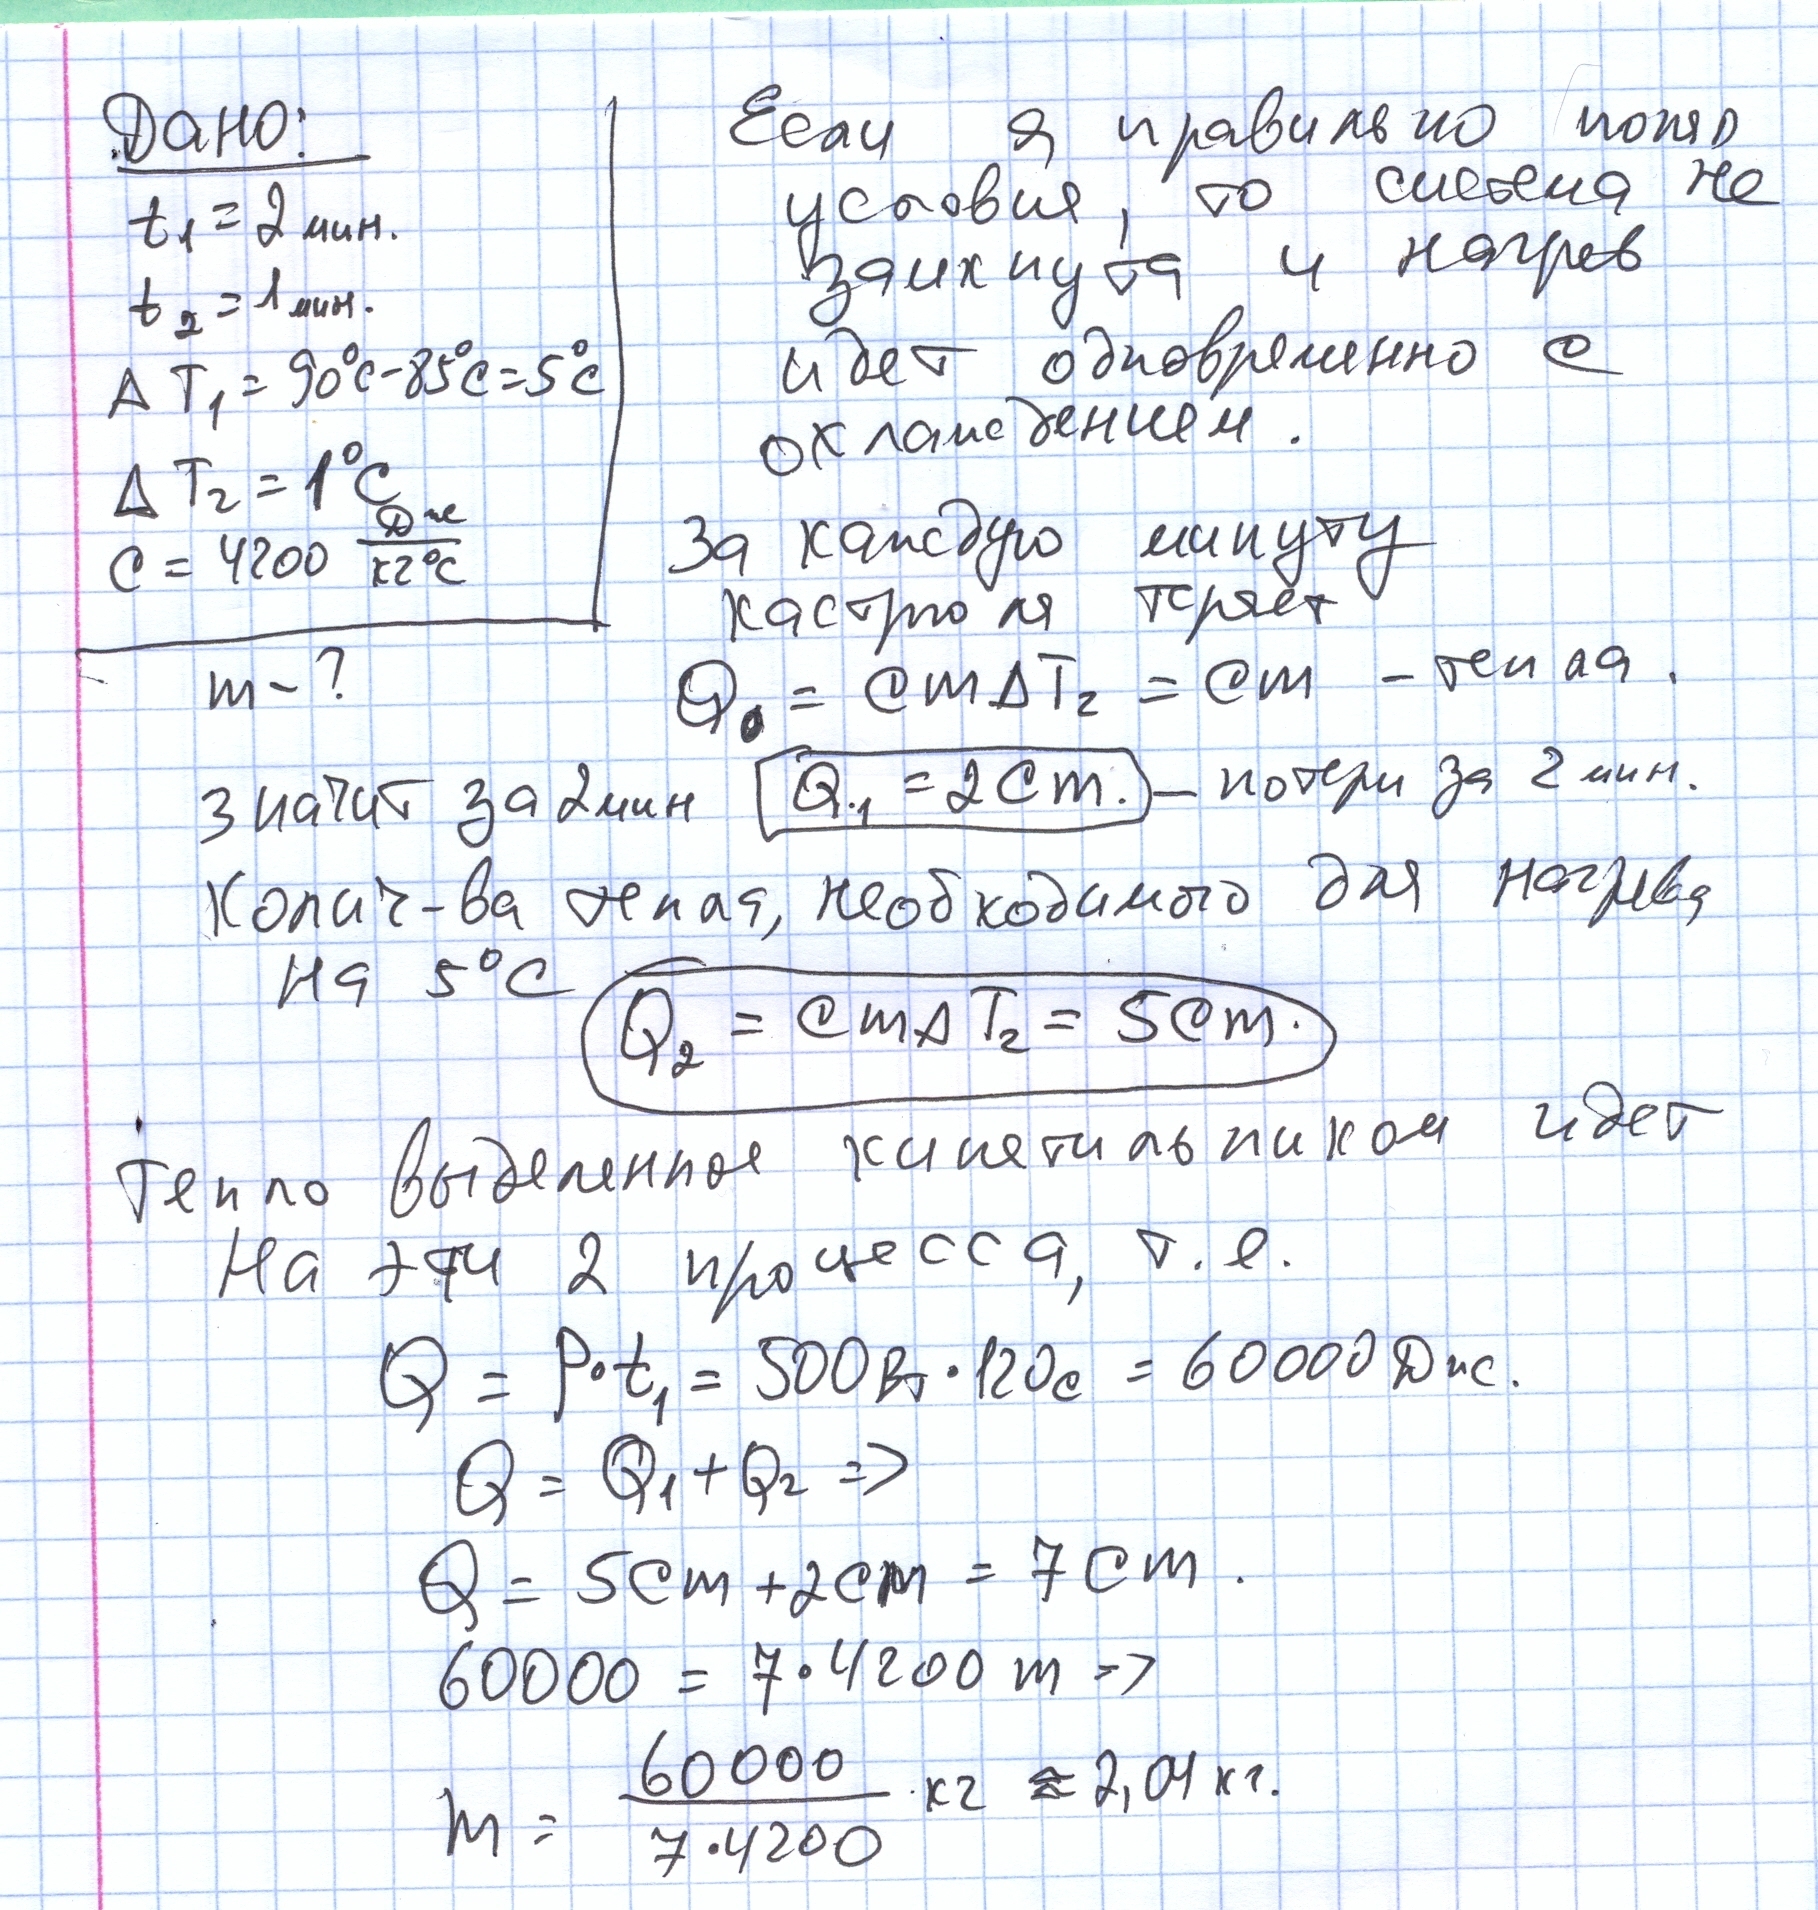 Дано:
t₁ = 2 мин.
t₂ = 1 мин.
ΔT₁ = 90°C - 85°C = 5°C
ΔT₂ = 1°C
C = 4200 Дж/кг°C
m - ?
Если я правильно понял
условия, то система не
замкнута и нагрев
идет одновременно с
охлаждением.
За каждую минуту
кастрюля теряет
Q₀ = cmΔT₂ = cm - тепла.
значит за 2 мин Q₁ = 2cm. - потери за 2 мин.
Колич-ва тепла, необходимого для нагрева
на 5°C Q₂ = cmΔT₂ = 5cm.
Тепло выделенное кипятильником идет
на эти 2 процесса, т.е.
Q = P·t₁ = 500 Вт · 120 с = 60000 Дж.
Q = Q₁ + Q₂ =>
Q = 5cm + 2cm = 7cm.
60000 = 7·4200 m =>
m = 60000/7·4200 · кг ≈ 2,04 кг.